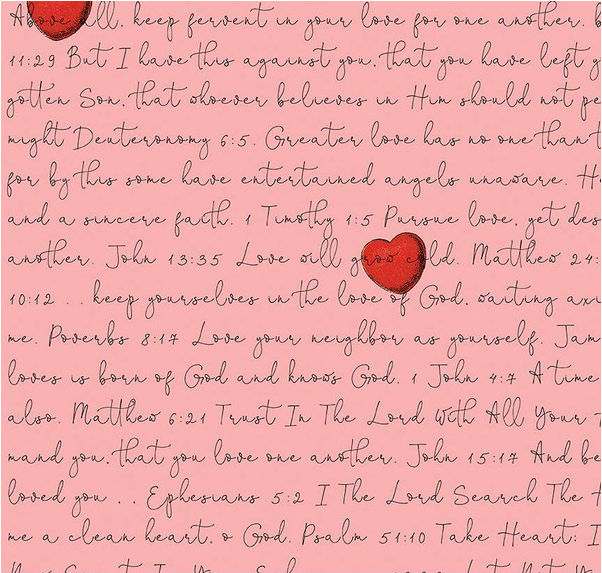 Above all, keep fervent in your love for one another.
11:29 But I have this against you, that you have left y
gotten Son, that whoever believes in Him should not pe
might Deuteronomy 6:5. Greater love has no one than t
for by this some have entertained angels unaware. H
and a sincere faith. 1 Timothy 1:5 Pursue love, yet des
another. John 13:35 Love will grow cold. Matthew 24:
10:12 .. keep yourselves in the love of God, waiting anxi
me. Poverbs 8:17 Love your neighbor as yourself. Jam
loves is born of God and knows God. 1 John 4:7 A time
also. Matthew 6:21 Trust In The Lord With All Your
mand you, that you love one another. John 15:17 And be
loved you .. Ephesians 5:2 I The Lord Search The H
me a clean heart, o God. Psalm 51:10 Take Heart; I